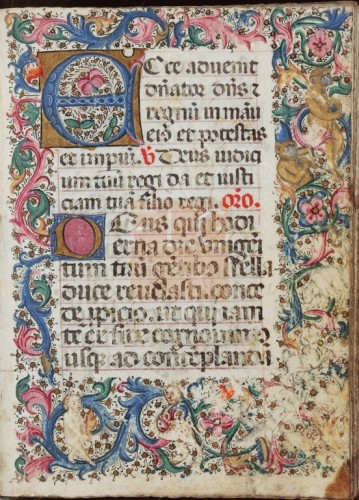 Ecce aduenit
dn̄ator dn̄s ꝛ
regnū in manu
eiꝰ et potestas
et impiū. V̷ Deus iudici
um tuū regi da et iusti
ciam tuā filio regi. Oro.
Deus qui hodi
erna die vnigeni
tum tuū gētibꝰ stella
duce reuelasti. conce
de ꝓpicius. ut qui iam
te ex fide
usqꝫ ad contēplandā